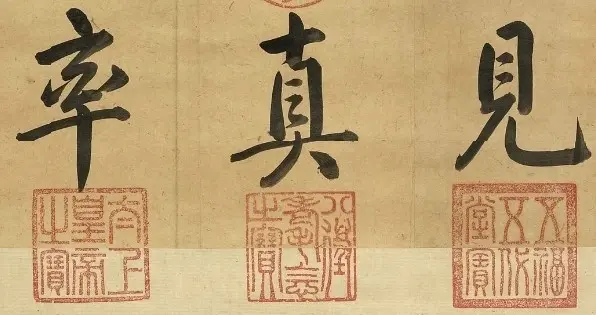 見真率
五福五代堂寶
八徵耄念之寶
太上皇帝之寶